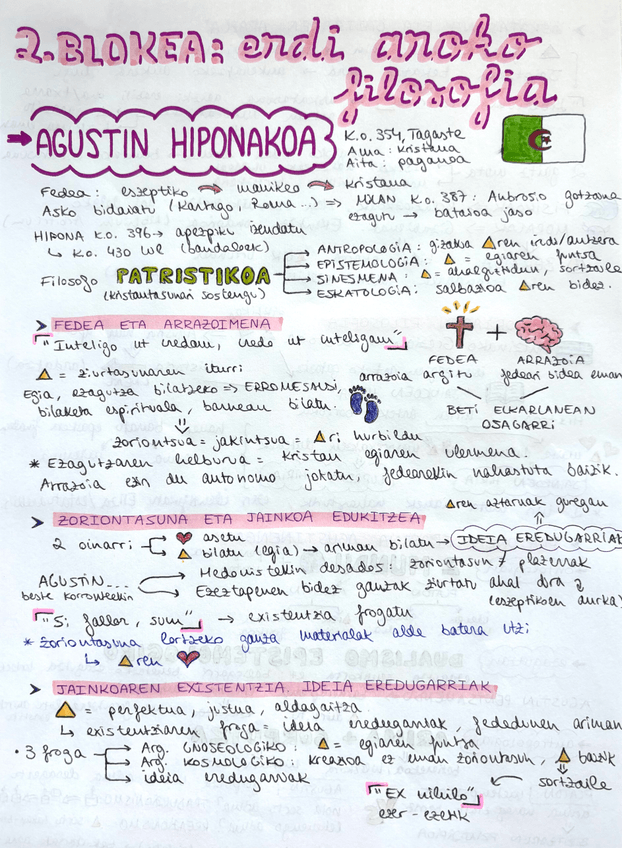 2. BLOKEA: erdi aroko
filosofia
AGUSTIN HIPONAKOA
K.o. 354, Tagaste
Ama: kristaua
Aita: paganoa
Fedea: eszeptiko → manikeo → kristaua
Asko bidaiatu (Kartago, Roma...) ⇒ MILAN K.o. 387: Ambrosio gotzaina
ezagutu → bataioa jaso
HIPONA K.o. 396 → apezpiku izendatu
↳ K.o. 430 hil (bandaloek)
Filosofo PATRISTIKOA
(kristautasunari sostengu)
ANTROPOLOGIA: gizakia △ren irudi/antzera
EPISTEMOLOGIA: △ = egiaren funtsa
SINESMENA: △ = ahalguztidun, sortzaile
ESKATOLOGIA: salbazioa △ren bidez.
➤ FEDEA ETA ARRAZOIMENA
"Inteligo ut credam, credo ut inteligam"
△ = ziurtasunaren iturri
Egia, ezagutza bilatzeko ⇒ ERROMESALDI,
bilaketa espirituala, barnean bilatu.
zoriontsua = jakintsua = △ri hurbildu
* Ezagutzaren helburua = kristau egiaren ulermena.
Arrazoia ezin du autonomo jokatu, fedearekin nahastuta baizik.
+
FEDEA ARRAZOIA
arrazoia argitu fedeari bidea eman
BETI ELKARLANEAN
OSAGARRI
➤ ZORIONTASUNA ETA JAINKOA EDUKITZEA
△ren aztarnak guregan
2 oinarri
asetu
△ bilatu (egia) → ariman bilatu → IDEIA EREDUGARRIAK
AGUSTIN...
beste korronteekin
Hedonistekin desados: zoriontasun ≠ plazerrak
Ezeztapenen bidez gauzak ziurtatu ahal dira
(eszeptikoen aurka)
"Si fallor, sum" → existentzia frogatu
* zoriontasuna lortzeko gauza materialak alde batera utzi
↳ △ren
➤ JAINKOAREN EXISTENTZIA. IDEIA EREDUGARRIAK
△ = perfektua, justua, aldagaitza.
↳ existentziaren froga = ideia eredugarriak, fededunen ariman
• 3 froga
Arg. GNOSEOLOGIKO: △ = egiaren funtsa
Arg. KOSMOLOGIKO: kreazioa ez eman zoriontasun, △ baizik
ideia eredugarriak
sortzaile
"EX nihilo"
ezer-ezetik